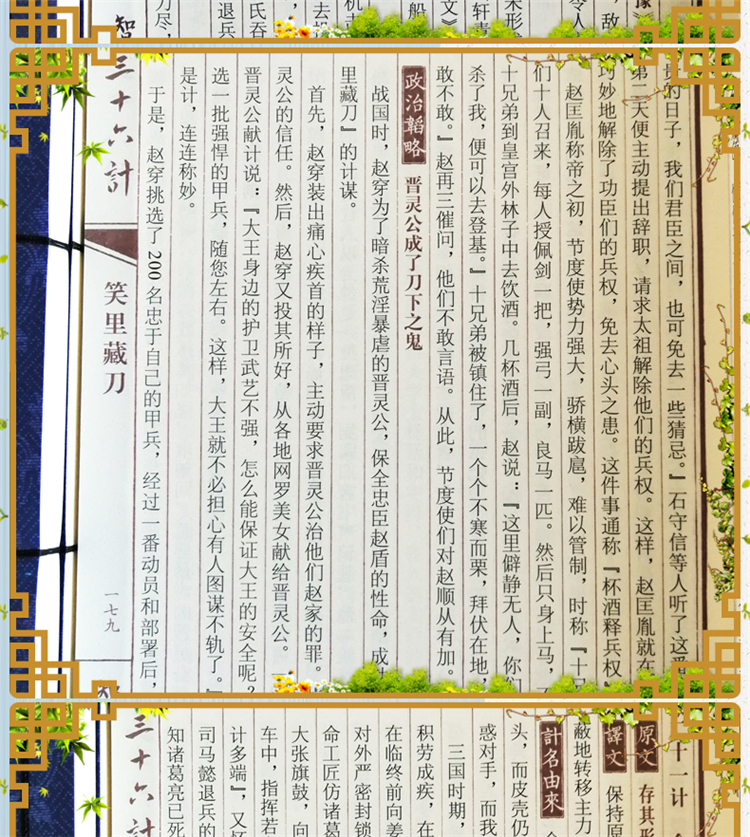 贵的日子，我们君臣之间，也可免去一些猜忌。』石守信等人听了这番
第二天便主动提出辞职，请求太祖解除他们的兵权。这样，赵匡胤就在
巧妙地解除了功臣们的兵权，免去心头之患。这件事通称『杯酒释兵权』
赵匡胤称帝之初，节度使势力强大，骄横跋扈，难以管制，时称『十兄
们十人召来，每人授佩剑一把，强弓一副，良马一匹。然后只身上马，
十兄弟到皇宫外林子中去饮酒。几杯酒后，赵说：『这里僻静无人，你们
杀了我，便可以去登基。』十兄弟被镇住了，一个个不寒而栗，拜伏在地，
敢不敢。』赵再三催问，他们不敢言语。从此，节度使们对赵顺从有加。
政治韬略 晋灵公成了刀下之鬼
战国时，赵穿为了暗杀荒淫暴虐的晋灵公，保全忠臣赵盾的性命，成
里藏刀』的计谋。
首先，赵穿装出痛心疾首的样子，主动要求晋灵公治他们赵家的罪。
灵公的信任。然后，赵穿又投其所好，从各地网罗美女献给晋灵公。
晋灵公献计说：『大王身边的护卫武艺不强，怎么能保证大王的安全呢？
选一批强悍的甲兵，随您左右。这样，大王就不必担心有人图谋不轨了。』
是计，连连称妙。
于是，赵穿挑选了200名忠于自己的甲兵，经过一番动员和部署后，
三十六計
笑里藏刀
一七九
十一计
原文 存其形
譯文 保持原
蔽地转移主力
計名由來
头，而皮壳仍
惑对手，而我
三国时期，
积劳成疾，在
在临终前向姜
对外严密封锁
命工匠仿诸葛
大张旗鼓，向
车中，指挥若
计多端』，又怀
司马懿退兵的
知诸葛亮已死
三十六計